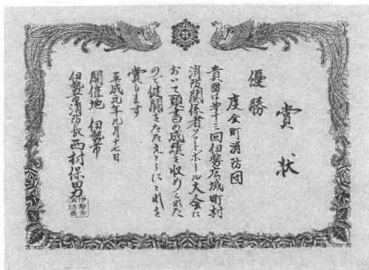 賞状
優勝
度会町消防団
貴団は第十三回伊勢広域町村
消防関係者ソフトボール大会に
おいて頭書の成績を収められた
ので健闘をたたえここにこれを
賞します
平成元年九月十七日
開催地 伊勢市
伊勢市消防長西村保男